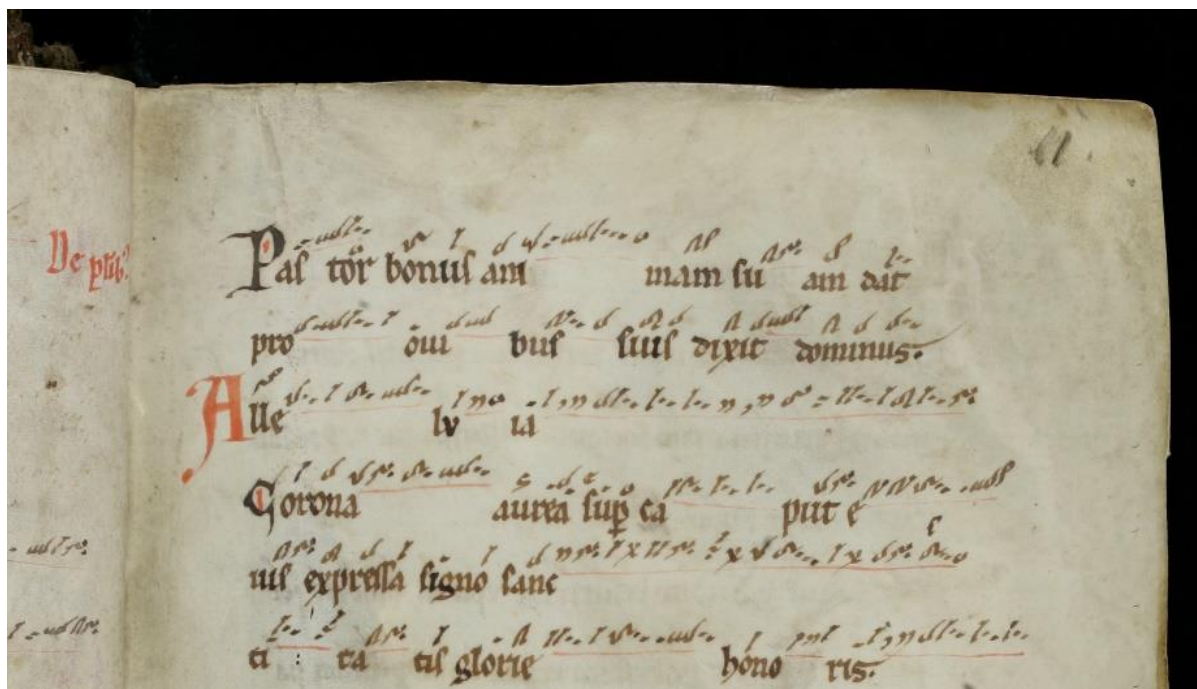 De p̄rib⁹
Pas tor bonus am mam su am dat
pro oui bus suis dixit dominus.
Alle lv ia
Corona aurea sup̄ ca put e
ius expressa signo sanc
ti ta tis glorie hono ris.